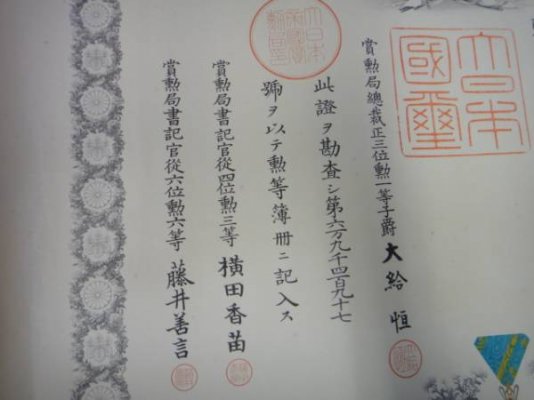 大日本
國璽
賞勲局總裁正三位勲一等子爵大給恒
此證ヲ勘査シ第六万九千四百九十七
號ヲ以テ勲等簿冊ニ記入ス
賞勲局書記官從四位勲三等横田香苗
賞勲局書記官從六位勲六等藤井善言